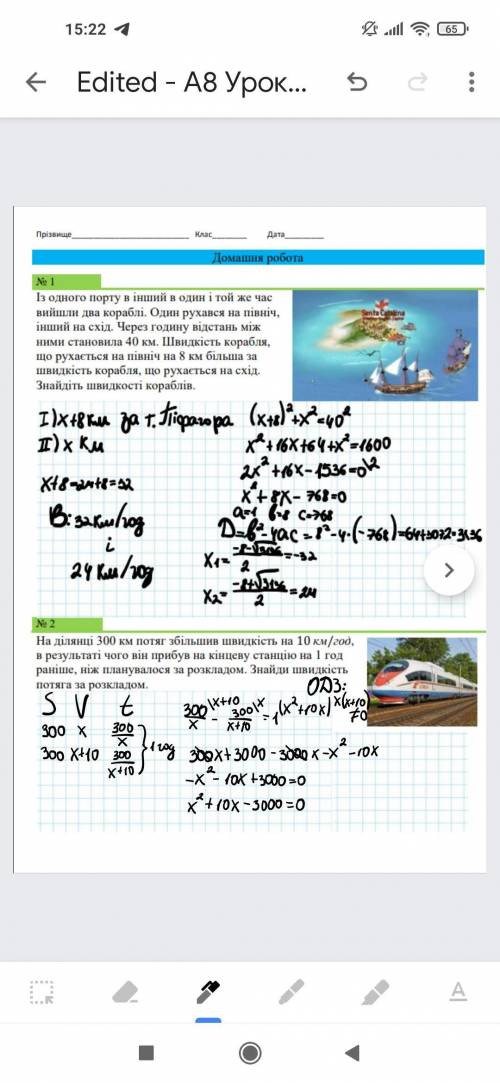 15:22
65
Edited - А8 Урок...
Прізвище Клас Дата
Домашня робота
№ 1
Із одного порту в інший в один і той же час
вийшли два кораблі. Один рухався на північ,
інший на схід. Через годину відстань між
ними становила 40 км. Швидкість корабля,
що рухається на північ на 8 км більша за
швидкість корабля, що рухається на схід.
Знайдіть швидкості кораблів.
Santa Catalina
I) x+8 км за т. Піфагора (x+8)²+x²=40²
II) x км
x²+16x+64+x²=1600
2x²+16x-1536=0 \2
x+8=24+8=32
x²+8x-768=0
a=1 b=8 c=-768
В: 32 км/год
і
24 км/год
D=b²-4ac=8²-4·(-768)=64+3072=3136
x₁= -8-√3136 / 2 =-32
x₂= -8+√3136 / 2 =24
№ 2
На ділянці 300 км потяг збільшив швидкість на 10 км/год,
в результаті чого він прибув на кінцеву станцію на 1 год
раніше, ніж планувалося за розкладом. Знайди швидкість
потяга за розкладом.
ОДЗ:
x(x+10)
≠0
S V t
300 x 300/x
300 x+10 300/x+10
1 год
300/x \x+10 - 300/x+10 \x =1 \(x²+10x)
300x+3000-300x-x²-10x
-x²-10x+3000=0
x²+10x-3000=0
A